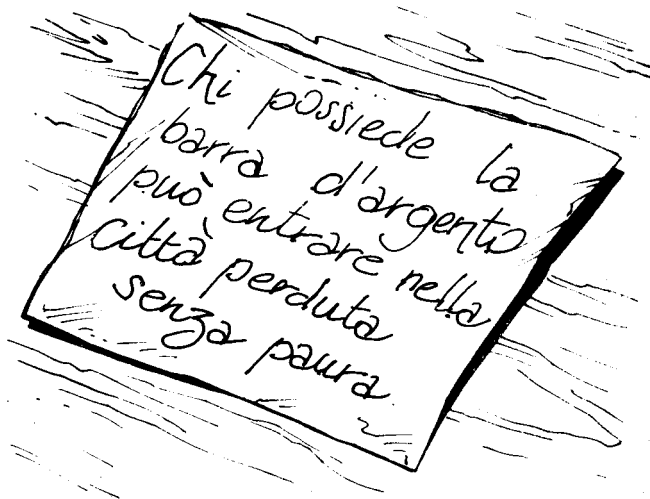 Chi possiede la
barra d'argento
può entrare nella
città perduta
senza paura